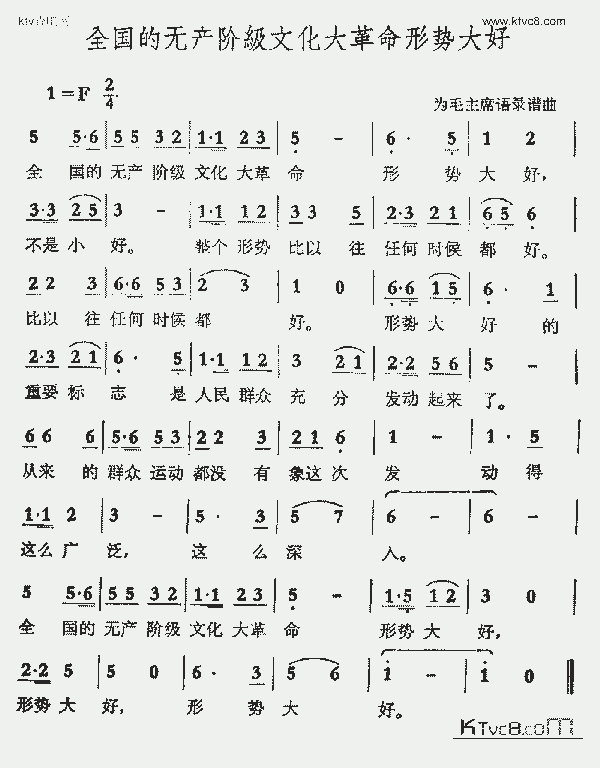 www.ktvc8.com
全国的无产阶級文化大革命形势大好
1=F 2/4
为毛主席语录谱曲
5 5·6 | 5 5 3 2 | 1·1 2 3 | 5 - | 6· 5 | 1 2 |
全 国的 无产 阶级 文化 大革 命 形 势 大 好,
3·3 2 5 | 3 - | 1·1 1 2 | 3 3 5 | 2·3 2 1 | 6 5 6 |
不是 小 好。 整个 形势 比以 往 任何 时候 都 好。
2 2 3 | 6·6 5 3 | 2 3 | 1 0 | 6·6 1 5 | 6· 1 |
比以 往 任何 时候 都 好。 形势 大 好 的
2·3 2 1 | 6· 5 | 1·1 1 2 | 3 2 1 | 2·2 5 6 | 5 - |
重要 标 志 是 人民 群众 充 分 发动 起来 了。
6 6 6 | 5·6 5 3 | 2 2 3 | 2 1 6 | 1 - | 1· 5 |
从来 的 群众 运动 都没 有 象这 次 发 动 得
1·1 2 | 3 - | 5· 3 | 5 7 | 6 - | 6 - |
这么 广 泛, 这 么 深 入。
5 5·6 | 5 5 3 2 | 1·1 2 3 | 5 - | 1·5 1 2 | 3 0 |
全 国的 无产 阶级 文化 大革 命 形势 大 好,
2·2 5 | 5 0 | 6· 3 | 5 6 | 1 - | 1 0 ‖
形势 大 好, 形 势 大 好。
KTvc8.com